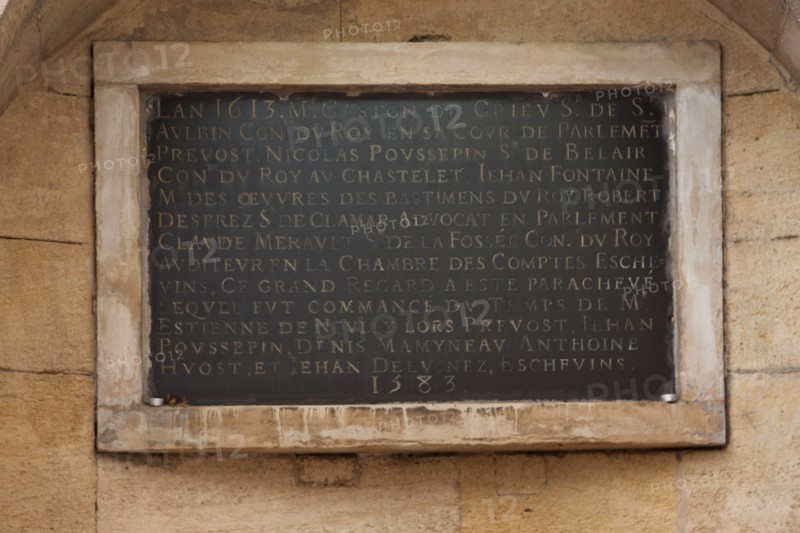 LAN 1613. Mᵉ GASTON DE GRIEV Sʳ DE Sᵗ
AVLBIN CON. DV ROY EN SA COVR DE PARLEMET̄
PREVOST. NICOLAS POVSSEPIN Sʳ DE BELAIR
CON. DV ROY AV CHASTELET IEHAN FONTAINE
Mᵉ DES ŒVVRES DES BASTIMENS DV ROY ROBERT
DESPREZ S. DE CLAMAR ADVOCAT EN PARLEMENT
CLAVDE MERAVLT S. DE LA FOSSÉE CON. DV ROY
AVDITEVR EN LA CHAMBRE DES COMPTES ESCHE-
VINS. CE GRAND REGARD A ESTE PARACHEVÉ
LEQVEL FVT COMMANCE DV TEMPS DE Mᵉ
ESTIENNE DE NVLLY LORS PREVOST. IEHAN
POVSSEPIN DENIS MAMYNEAV ANTHOINE
HVOST. ET IEHAN ESCHEVINS.
1583.
PHOTO12